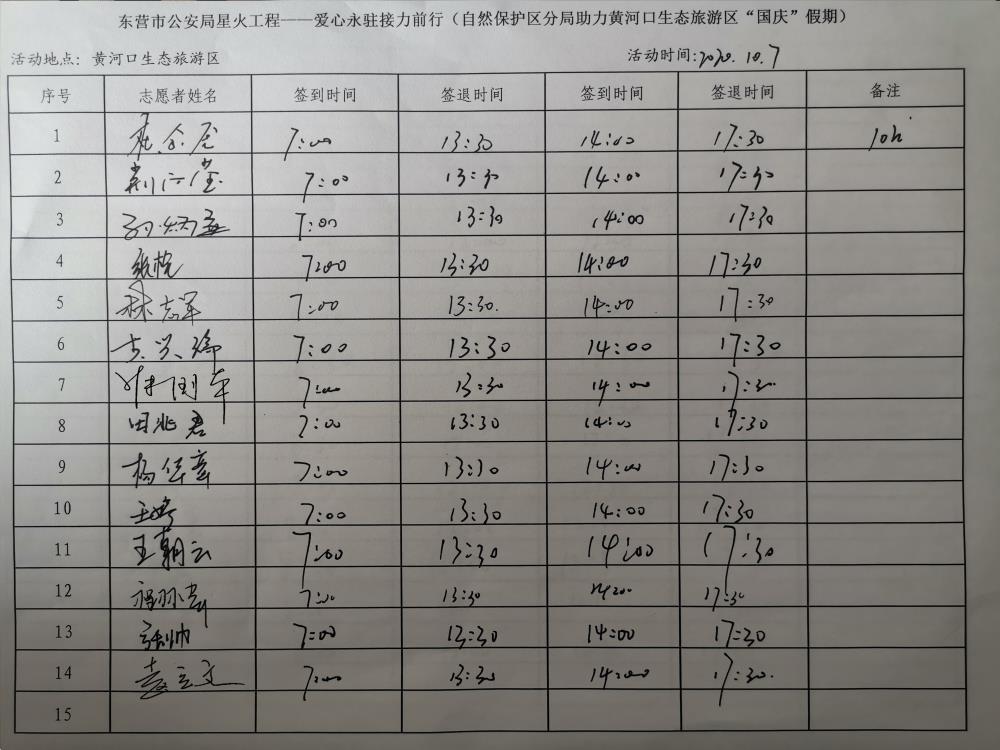 东营市公安局星火工程——爱心永驻接力前行（自然保护区分局助力黄河口生态旅游区“国庆”假期）
活动地点：黄河口生态旅游区 活动时间:2020.10.7
序号 志愿者姓名 签到时间 签退时间 签到时间 签退时间 备注
1 7:00 13:30 14:00 17:30 10h
2 7:00 13:30 14:00 17:30
3 7:00 13:30 14:00 17:30
4 7:00 13:30 14:00 17:30
5 林志军 7:00 13:30. 14:00 17:30
6 7:00 13:30 14:00 17:30
7 7:00 13:30 14:00 17:30
8 田兆君 7:00 13:30 14:00 17:30
9 杨华章 7:00 13:30 14:00 17:30
10 7:00 13:30 14:00 17:30
11 王朝云 7:00 13:30 14:00 17:30
12 7:00 13:30 14:00 17:30
13 张帅 7:00 13:30 14:00 17:30
14 袁立文 7:00 13:30 14:00 17:30.
15